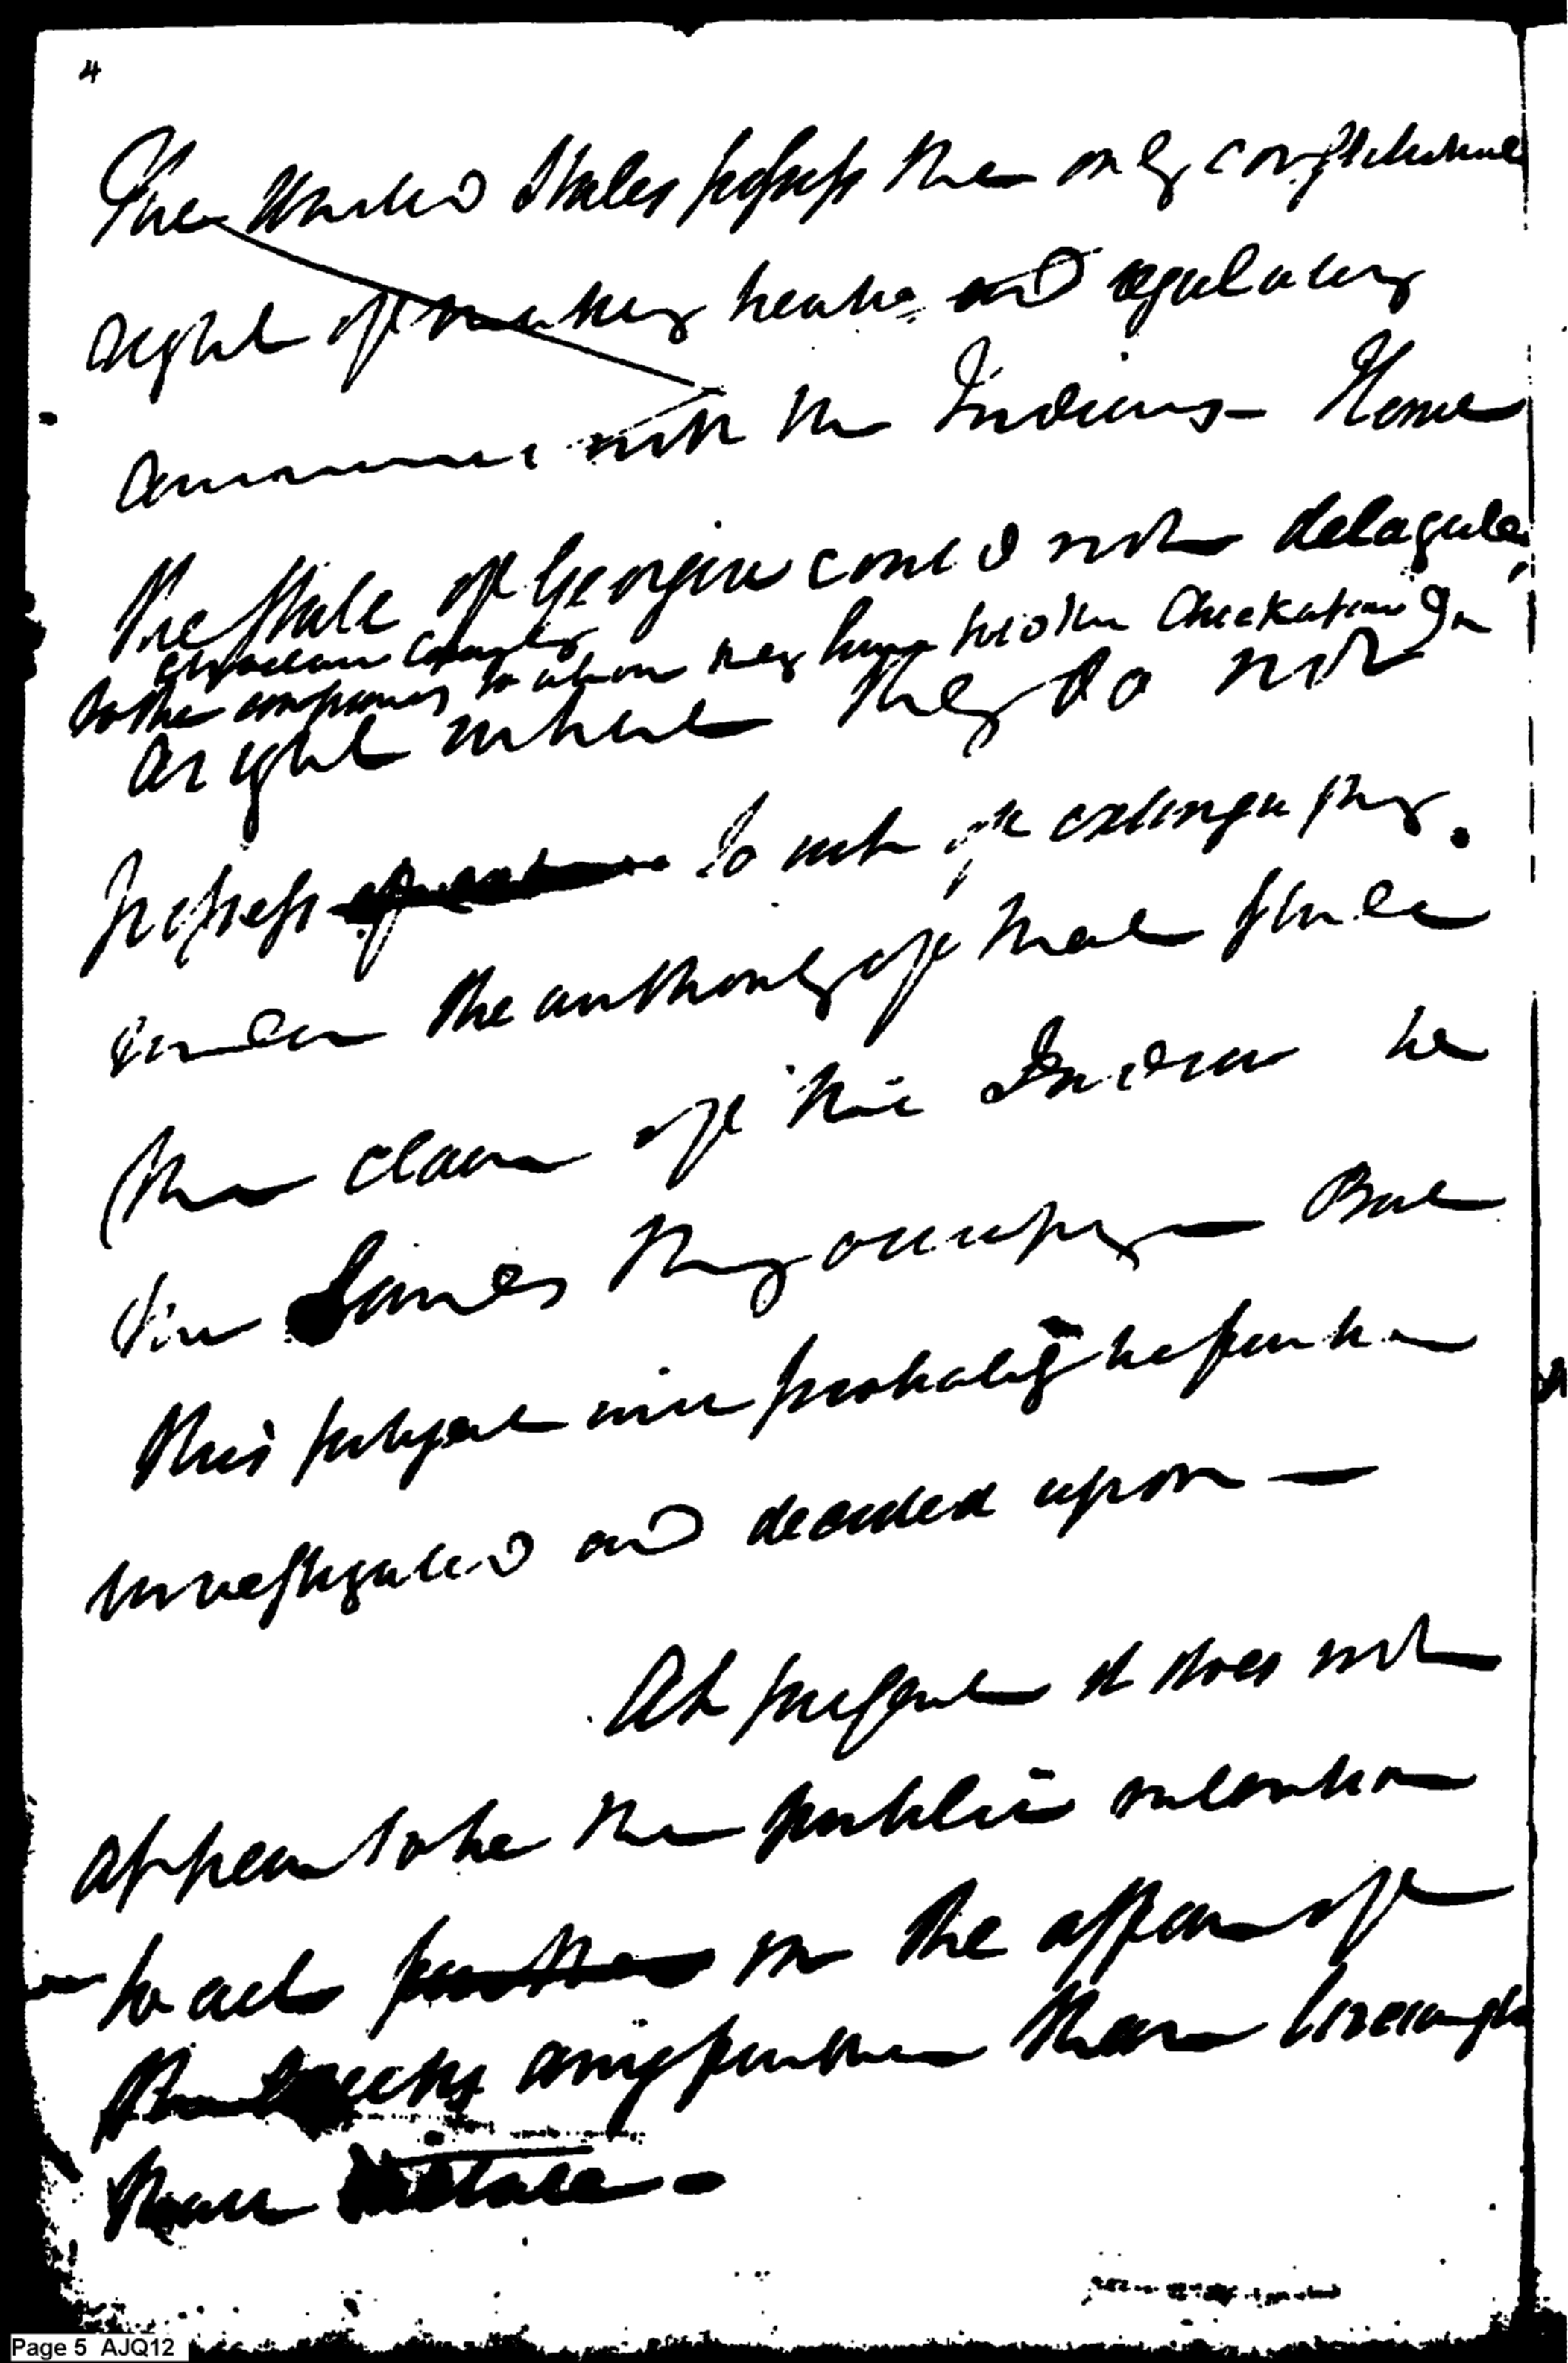 4
The United States possess the only constitutional
right of making treaties and regulating
commerce with the Indians – Hence
the State of Georgia could not delagate,
to the companies to whom they have sold the Chickasaw &
a right where they do not
possess to wit of extinguishing
under the authority of that State
the claim of the Indians to
the Lands they occupy – But
this subject will probably be further
investigated and decided upon —
At present it does not
appear to be the public intention
to act further in the affair of
the Creeks any further than
shall state –
Page 5 AJQ12